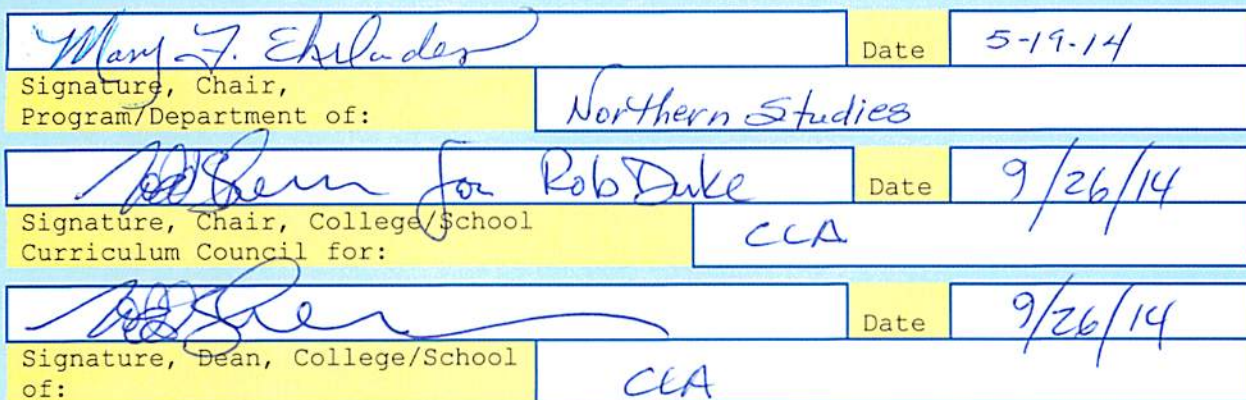 Mary F. Ehrlander Date 5-19-14
Signature, Chair,
Program/Department of: Northern Studies
for Rob Duke Date 9/26/14
Signature, Chair, College/School
Curriculum Council for: CLA
Date 9/26/14
Signature, Dean, College/School
of: CLA